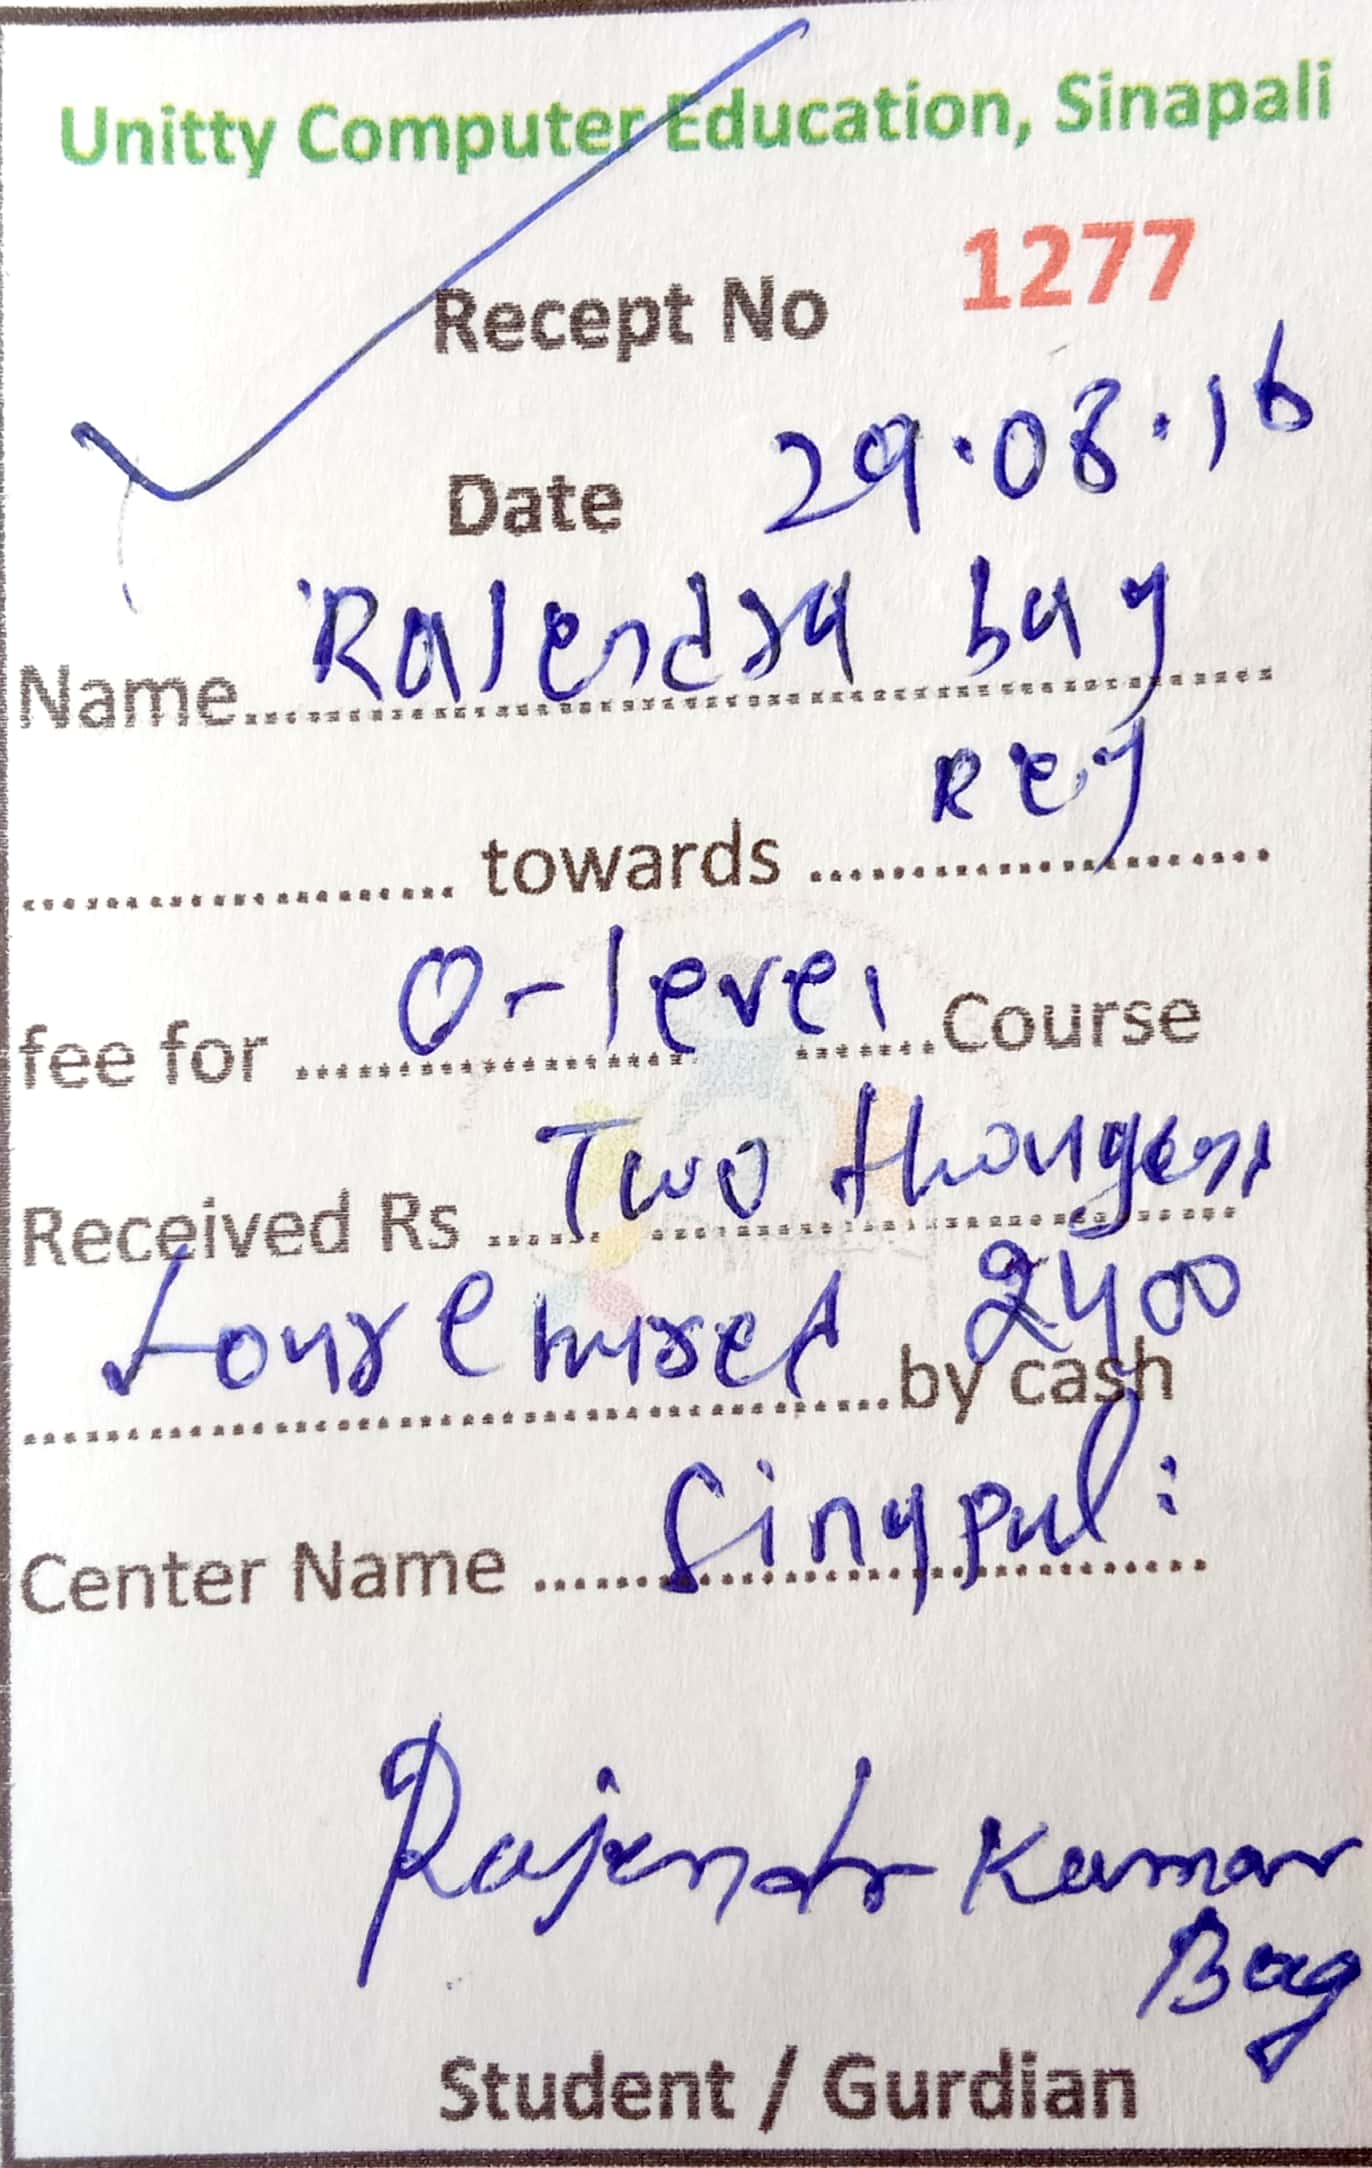 Unitty Computer Education, Sinapali
Recept No 1277
Date 29.08.16
Name Rajendra bag
towards Reg
fee for O-level Course
Received Rs Two
2400
by cash
Center Name Sinapali
Rajendra Kumar
Bag
Student / Gurdian